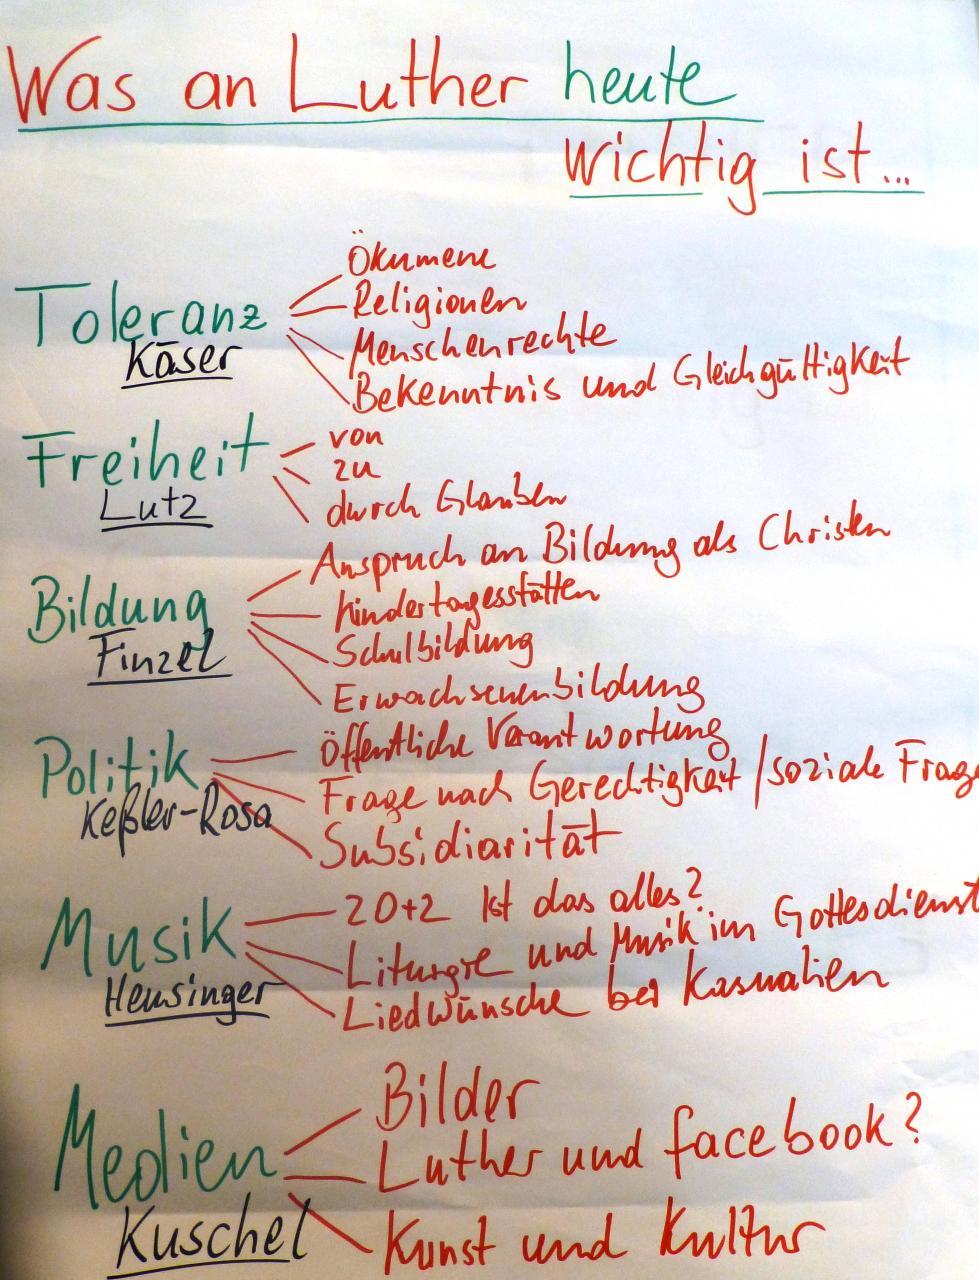 Was an Luther heute
wichtig ist...
Toleranz
Käser
Ökumene
Religionen
Menschenrechte
Bekenntnis und Gleichgültigkeit
Freiheit
Lutz
von
zu
durch Glauben
Bildung
Finzel
Anspruch an Bildung als Christen
Kindertagesstätten
Schulbildung
Erwachsenenbildung
Politik
Keßler-Rosa
öffentliche Verantwortung
Frage nach Gerechtigkeit / soziale Frage
Subsidiarität
Musik
Heusinger
20+2 Ist das alles?
Liturgie und Musik im Gottesdienst
Liedwünsche bei Kasualien
Medien
Kuschel
Bilder
Luther und facebook?
Kunst und Kultur